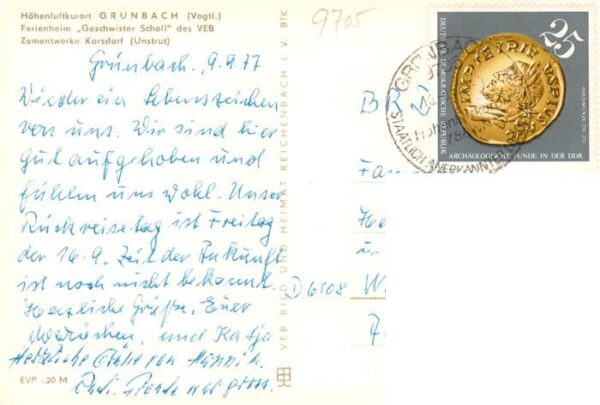 Höhenluftkurort GRÜNBACH (Vogtl.)
Ferienheim „Geschwister Scholl" des VEB
Zementwerke Karsdorf (Unstrut)
9705
Grünbach, 9.9.77
Wieder ein Lebenszeichen
von uns. Wir sind hier
gut aufgehoben und
fühlen uns wohl. Unser
Rückreisetag ist Freitag
der 16.9. Zeit der Ankunft
ist noch nicht bekannt.
Herzliche Grüsse, Euer
und Katja
Herzliche Grüße von
EVP -,20 M
VEB BILD UND HEIMAT REICHENBACH i. V. BTK
BR
Fa
D 6108 W
DEUTSCHE DEMOKRATISCHE REPUBLIK
25
GOLDMÜNZE 270-273
ARCHÄOLOGISCHE FUNDE IN DER DDR
GRÜNBACH
STAATLICH ANERKANNTER